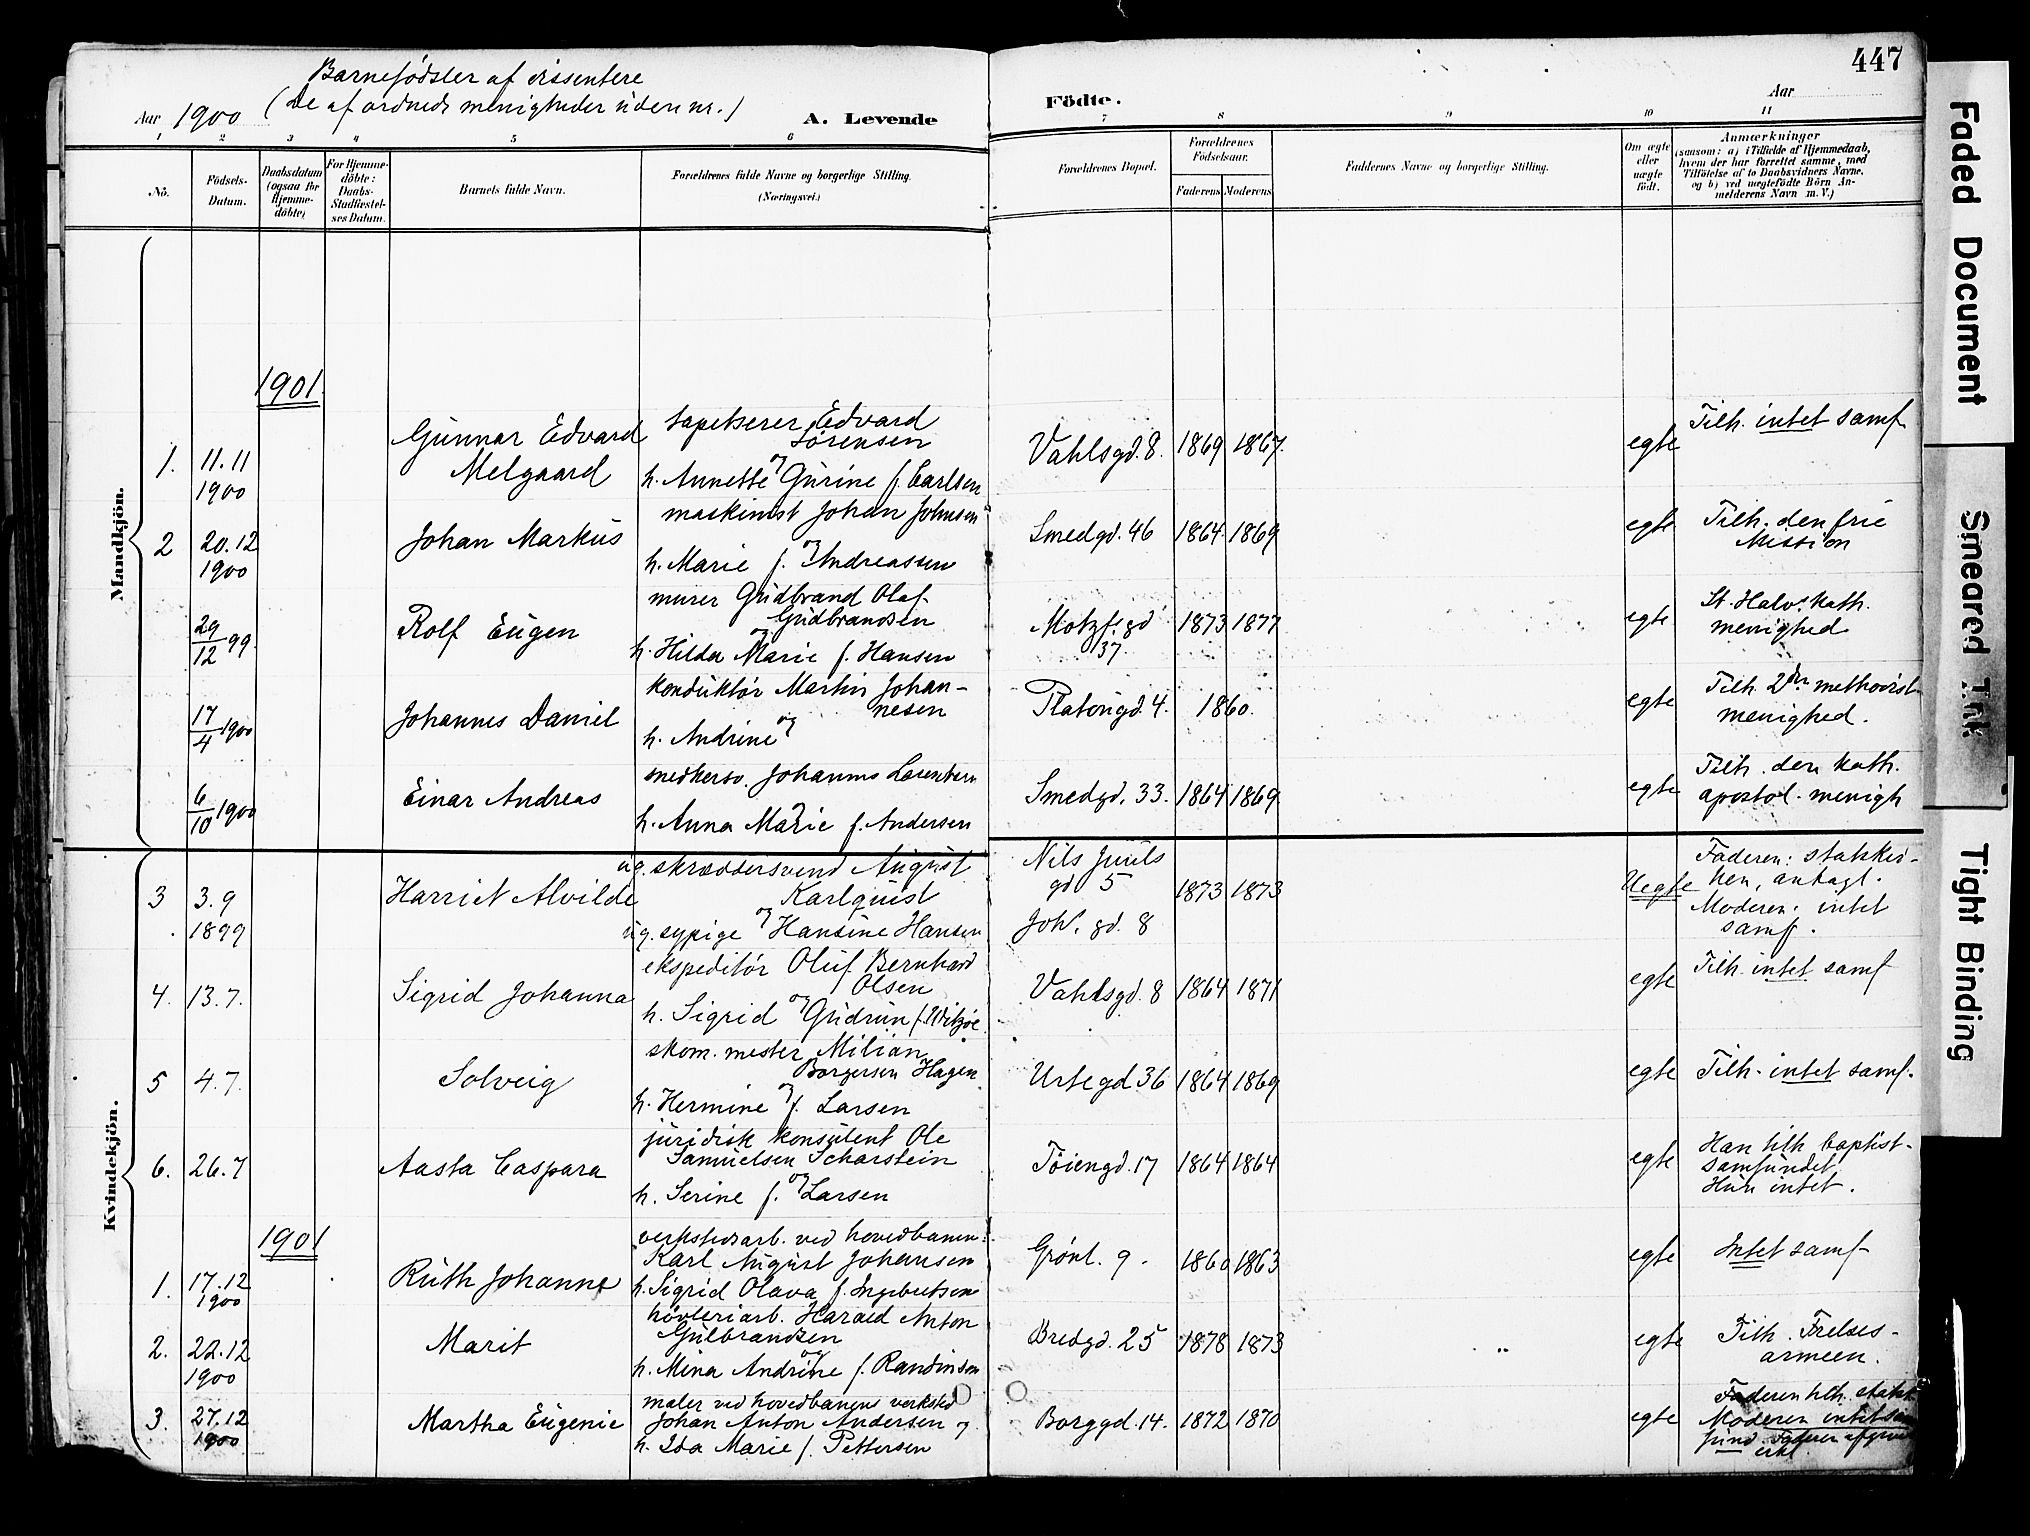 447
Barnefödsler af dissentere
(De af ordnede menigheder uden nr.)
Aar 1900
A. Levende
Födte.
Aar
1 2 3 4 5 6 7 8 9 10 11
Nö.
Födsels-
Datum.
Daabsdatum
(ogsaa for
Hjemme-
döbte)
For Hjemme-
döbte:
Daabs-
Stadfæstel-
ses Datum.
Barnets fulde Navn.
Forældrenes fulde Navne og borgerlige Stilling.
(Næringsvei.)
Forældrenes Bopæl.
Forældrenes
Födselsaar.
Faderens Moderens
Faddernes Navne og borgerlige Stilling.
Om ægte
eller
uægte
født.
Anmærkninger
(saasom: a) i Tilfælde af Hjemmedaab,
hvem der har forrettet samme, med
Tilföielse af to Daabsvidners Navne,
og b) ved uegtefödte Börn An-
melderens Navn m. V.)
Mandkjön.
1901.
1. 11.11
1900
Gunnar Edvard
Melgaard
tapetserer Edvard
Sörensen
og
h. Annette Gurine f. Carlsen
Vahlsgd. 8. 1869 1867. egte
Tilh. intet samf
2 20.12
1900
Johan Markus
maskinist Johan Johnsen
og
h. Marie f. Andreassen
Smedgd. 46 1864. 1869 egte
Tilh. den frie
Mission
29/12 99.
Rolf Eugen
murer Gudbrand Olaf
Gudbrandsen
og
h. Hilda Marie f. Hansen
Motzfs gd
37.
1873 1877 egte
St. Halvs. kath.
menighed
17/4 1900
Johannes Daniel
konduktör Martin Johan-
nesen
og
h. Andrine
Platousgd. 4. 1860. egte
Tilh. 2den methodist
menighed.
6/10 1900
Einar Andreas
snedkersv. Johannes
og
h. Anna Marie f. Andersen
Smedgd. 33. 1864 1869. egte
Tilh. den kath.
apostol. menigh
Kvindekjön.
3 3.9
1899
Harriet Alvilde
ug. skræddersvend August
Karlquist
og
ug. sypige Hansine Hansen
Nils Juuls
gd 5
Johs. gd. 8
1873 1873 Uegte
Faderen: statskir-
ken, antagl.
Moderen: intet
samf.
4. 13.7.
Sigrid Johanna
ekspeditör Oluf Bernhard
Olsen
og
h. Sigrid Gudrun f. Witzöe
Vahlsgd. 8 1864 1871 egte
Tilh. intet samf
5 4.7.
Solveig
skom. mester Milian
Borgersen Hagen
og
h. Hermine f. Larsen
Urtegd 36 1864 1869 egte
Tilh. intet samf.
6. 26.7
Aasta Caspara
juridisk konsulent Ole
Samuelsen Scharstein
og
h. Serine f. Larsen
Töiengd. 17 1864 1864 egte
Han tilh baptist-
samfundet
Hun intet.
1901
1. 17.12
1900
Ruth Johanne
verkstedsarb. ved hovedbanen:
Karl August Johansen
h. Sigrid Olava f. Ingebretsen
Grönl. 9. 1860 1863 egte
Intet samf
2. 22.12
1900
Marit
hövleriarb. Harald Anton
Gulbrandsen
og
h. Mina Andrine f. Randinsen
Bredgd. 25 1878 1873 egte
Tilh. Frelses-
armeen.
3. 27.12
1900
Martha Eugenie
maler ved hovedbanens verksted
Johan Anton Andersen og
h. Ida Marie f. Pettersen
Borggd. 14. 1872 1870 egte
Faderen tilh. statsk
Moderen intet sam
fund. Faderen
Faded Document
Smeared Ink
Tight Binding